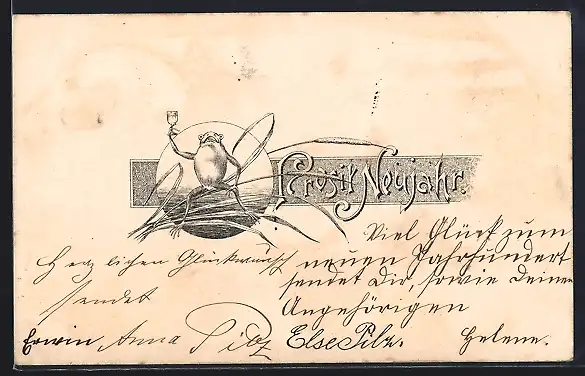 Prosit Neujahr.
Viel Glück zum
neuen Jahrhundert
sendet Dir, sowie Deinen
Angehörigen
Helene.
Herzlichen Glückwunsch
sendet
Erwin Anna Pilz Else Pilz.